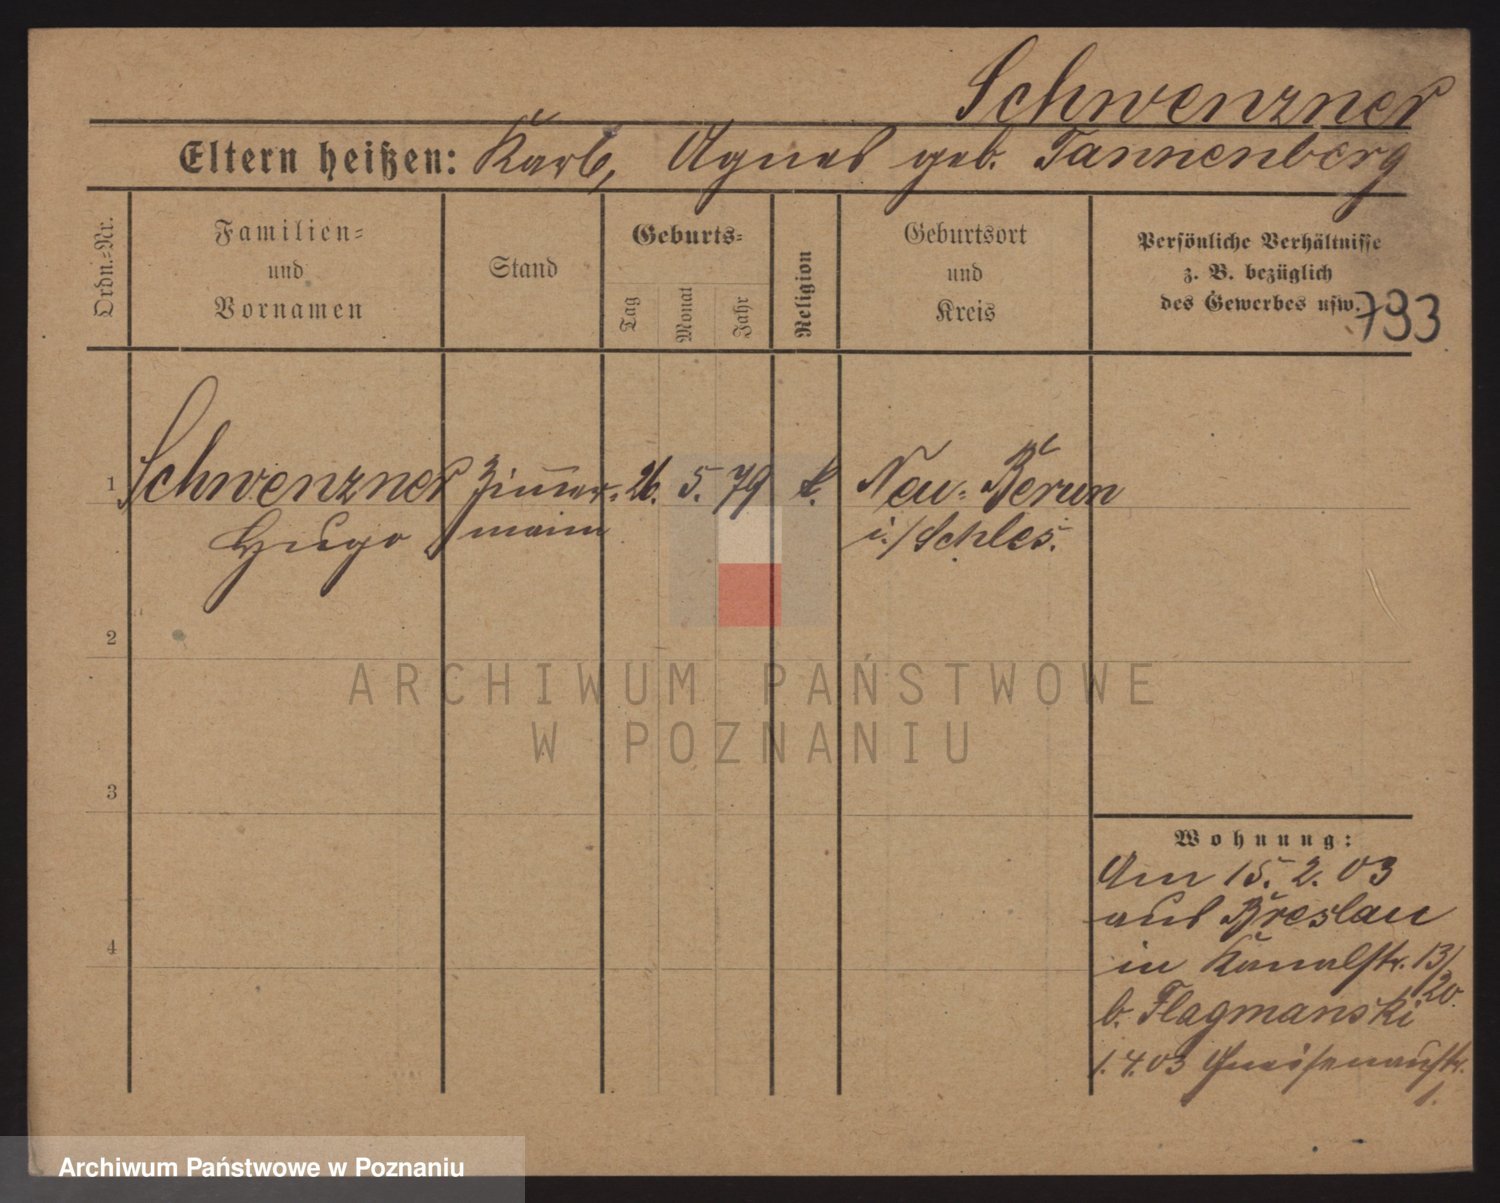 Schwenzner
Eltern heißen: Karl, Agnes geb. Tannenberg
Ordn.-Nr.
Familien- und Vornamen
Stand
Geburts-
Tag
Monat
Jahr
Religion
Geburtsort und Kreis
Persönliche Verhältnisse
z. B. bezüglich
des Gewerbes usw.
793
1 Schwenzner Zimmer- 26. 5. 79 k. Neu-Berun
Hugo mann i./Schles.
2
3
4
Wohnung:
Am 15. 2. 03
aus Breslau
in Kanalstr. 13/20.
b. Flagmanski
1. 4. 03 Gneisenaustr.
1.
ARCHIWUM PAŃSTWOWE
W POZNANIU
Archiwum Państwowe w Poznaniu